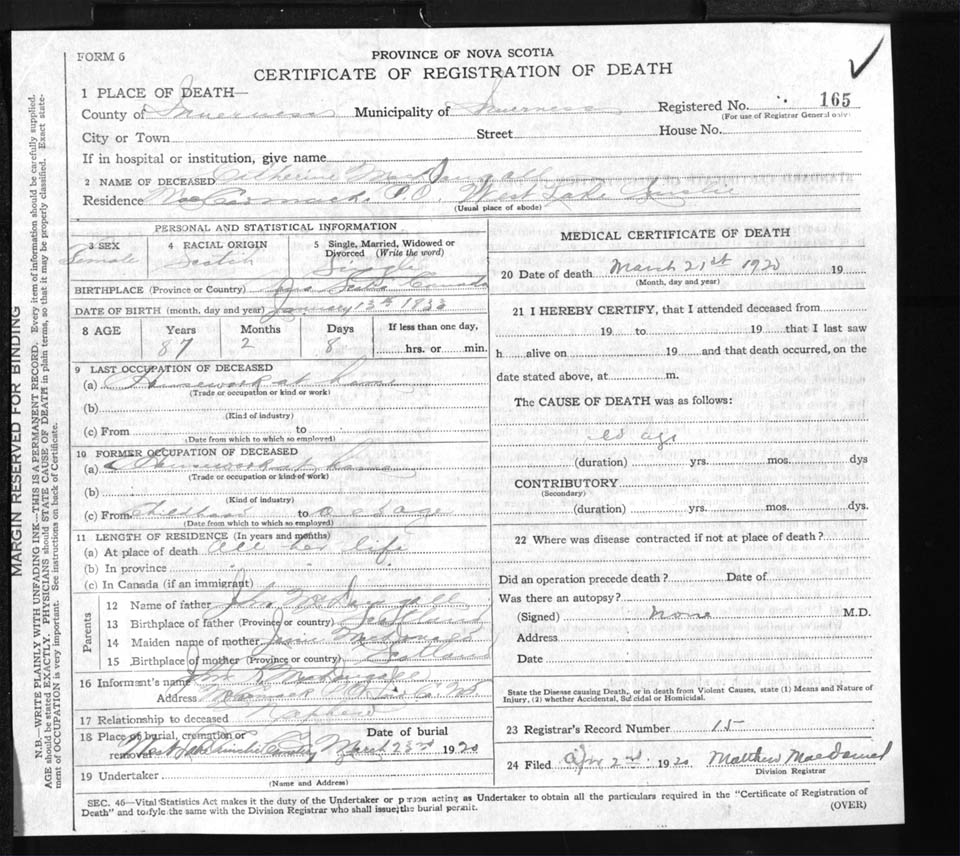 FORM 6
PROVINCE OF NOVA SCOTIA
CERTIFICATE OF REGISTRATION OF DEATH
1 PLACE OF DEATH—
County of Inverness Municipality of Inverness Registered No. 165
(For use of Registrar General only)
City or Town Street House No.
If in hospital or institution, give name
2 NAME OF DECEASED Catherine MacDougall
Residence MacCormacks P.O. West Lake Ainslie
(Usual place of abode)
PERSONAL AND STATISTICAL INFORMATION
3 SEX 4 RACIAL ORIGIN 5 Single, Married, Widowed or Divorced (Write the word)
Female Scotch Single
BIRTHPLACE (Province or Country) Nova Scotia Canada
DATE OF BIRTH (month, day and year) January 13th 1833
8 AGE Years Months Days If less than one day,
87 2 8 hrs. or min.
9 LAST OCCUPATION OF DECEASED
(a) Housework at home
(Trade or occupation or kind or work)
(b)
(Kind of industry)
(c) From to
(Date from which to which so employed)
10 FORMER OCCUPATION OF DECEASED
(a) Housework at home
(Trade or occupation or kind of work)
(b)
(Kind of industry)
(c) From Childhood to old age
(Date from which to which so employed)
11 LENGTH OF RESIDENCE (In years and months)
(a) At place of death all her life
(b) In province " " "
(c) In Canada (if an immigrant)
Parents
12 Name of father John McDougall
13 Birthplace of father (Province or country) Scotland
14 Maiden name of mother McDonald
15 Birthplace of mother (Province or country) Scotland
16 Informant's name John R McDougall
Address
17 Relationship to deceased Nephew
18 Place of burial, cremation or removal West Lake Ainslie Cemetery Date of burial March 23rd 1920
19 Undertaker
(Name and Address)
MEDICAL CERTIFICATE OF DEATH
20 Date of death March 21st 1920 19
(Month, day and year)
21 I HEREBY CERTIFY, that I attended deceased from
19 to 19 that I last saw
h alive on 19 and that death occurred, on the
date stated above, at m.
The CAUSE OF DEATH was as follows:
old age
(duration) yrs. mos. dys
CONTRIBUTORY
(Secondary)
(duration) yrs. mos. dys.
22 Where was disease contracted if not at place of death?
Did an operation precede death? Date of
Was there an autopsy?
(Signed) none M.D.
Address
Date
State the Disease causing Death, or in death from Violent Causes, state (1) Means and Nature of
Injury, (2) whether Accidental, Suicidal or Homicidal.
23 Registrar's Record Number 15
24 Filed Apr 2nd 1920 Matthew MacDonald
Division Registrar
SEC. 46—Vital Statistics Act makes it the duty of the Undertaker or person acting as Undertaker to obtain all the particulars required in the "Certificate of Registration of
Death" and to fyle the same with the Division Registrar who shall issue the burial permit.
(OVER)
MARGIN RESERVED FOR BINDING
N.B.—WRITE PLAINLY WITH UNFADING INK—THIS IS A PERMANENT RECORD. Every item of information should be carefully supplied.
AGE should be stated EXACTLY. PHYSICIANS should STATE CAUSE OF DEATH in plain terms, so that it may be properly classified. Exact state-
ment of OCCUPATION is very important. See instructions on back of Certificate.